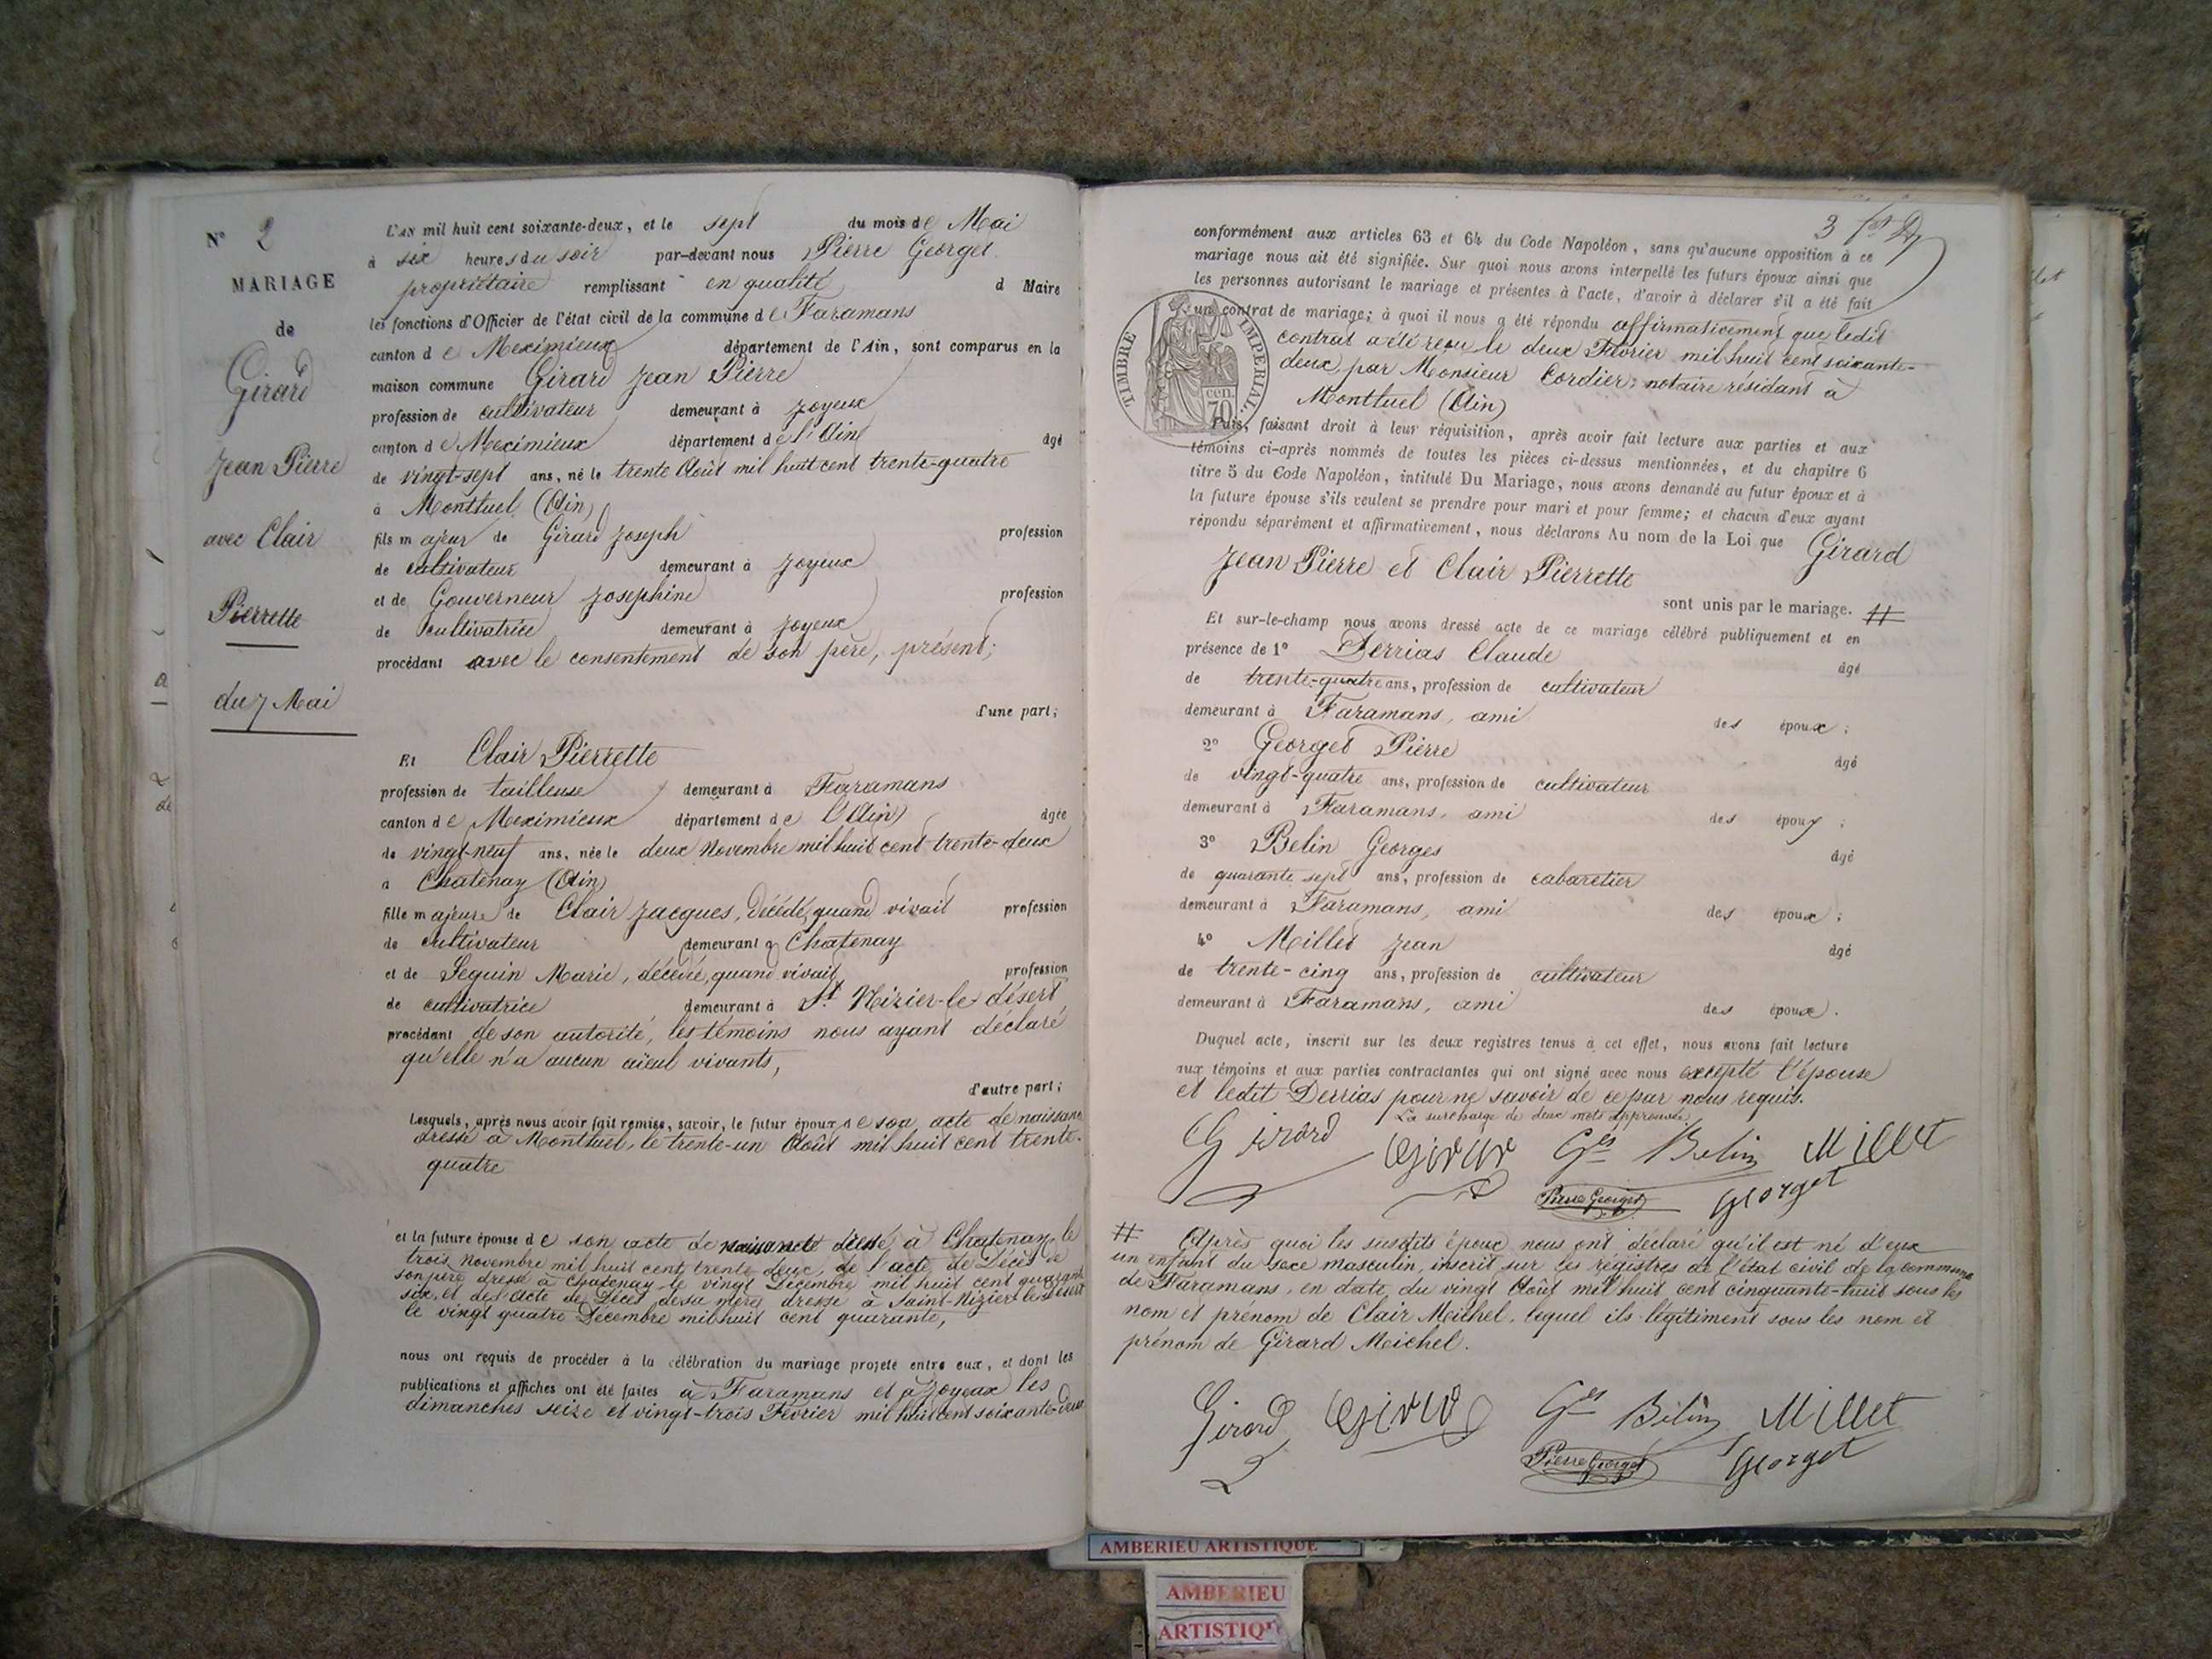 N° 2
MARIAGE
de
Girard
Jean Pierre
avec Clair
Pierrette
du 7 Mai
L'AN mil huit cent soixante-deux, et le sept du mois de Mai
à six heures du soir par-devant nous Pierre Georget
propriétaire remplissant en qualité d Maire
les fonctions d'Officier de l'état civil de la commune de Faramans
canton de Meximieux département de l'Ain, sont comparus en la
maison commune Girard Jean Pierre
profession de cultivateur demeurant à Joyeux
canton de Meximieux département de l'Ain âgé
de vingt-sept ans, né le trente Août mil huit cent trente-quatre
à Montluel (Ain)
fils majeur de Girard Joseph profession
de cultivateur demeurant à Joyeux
et de Gouverneur Josephine profession
de cultivatrice demeurant à Joyeux
procédant avec le consentement de son père, présent;
d'une part;
Et Clair Pierrette
profession de tailleuse demeurant à Faramans
canton de Meximieux département de l'Ain âgée
de vingt-neuf ans, née le deux Novembre mil huit cent trente-deux
à Chatenay (Ain)
fille majeure de Clair Jacques, décédé, quand vivait profession
de cultivateur demeurant à Chatenay
et de Seguin Marie, décédé, quand vivait profession
de cultivatrice demeurant à St Nizier-le-désert
procédant de son autorité, les témoins nous ayant déclaré
qu'elle n'a aucun aïeul vivants,
d'autre part;
Lesquels, après nous avoir fait remise, savoir, le futur époux de son acte de naissance
dressé à Montluel, le trente-un Août mil huit cent trente-
quatre
et la future épouse de son acte de naissance dressé à Chatenay le
trois Novembre mil huit cent trente deux, de l'acte de Décès de
son père dressé à Chatenay le vingt Décembre mil huit cent quarante
six, et de l'acte de Décès de sa mère dressé à Saint-Nizier le désert
le vingt quatre Décembre mil huit cent quarante,
nous ont requis de procéder à la célébration du mariage projeté entre eux, et dont les
publications et affiches ont été faites à Faramans et à Joyeux les
dimanches seize et vingt-trois Février mil huit cent soixante-deux
3
conformément aux articles 63 et 64 du Code Napoléon, sans qu'aucune opposition à ce
mariage nous ait été signifiée. Sur quoi nous avons interpellé les futurs époux ainsi que
les personnes autorisant le mariage et présentes à l'acte, d'avoir à déclarer s'il a été fait
un contrat de mariage; à quoi il nous a été répondu affirmativement que ledit
contrat a été reçu le deux Février mil huit cent soixante-
deux, par Monsieur Cordier, notaire résidant à
Montluel (Ain)
TIMBRE IMPERIAL.
70 cen.
Puis, faisant droit à leur réquisition, après avoir fait lecture aux parties et aux
témoins ci-après nommés de toutes les pièces ci-dessus mentionnées, et du chapitre 6
titre 5 du Code Napoléon, intitulé Du Mariage, nous avons demandé au futur époux et à
la future épouse s'ils veulent se prendre pour mari et pour femme; et chacun d'eux ayant
répondu séparément et affirmativement, nous déclarons Au nom de la Loi que Girard
Jean Pierre et Clair Pierrette
sont unis par le mariage. #
Et sur-le-champ nous avons dressé acte de ce mariage célébré publiquement et en
présence de 1° Derrias Claude âgé
de trente-quatre ans, profession de cultivateur
demeurant à Faramans, ami des époux;
2° Georget Pierre âgé
de vingt-quatre ans, profession de cultivateur
demeurant à Faramans, ami des époux;
3° Belin Georges âgé
de quarante sept ans, profession de cabaretier
demeurant à Faramans, ami des époux;
4° Millet Jean âgé
de trente-cinq ans, profession de cultivateur
demeurant à Faramans, ami des époux.
Duquel acte, inscrit sur les deux registres tenus à cet effet, nous avons fait lecture
aux témoins et aux parties contractantes qui ont signé avec nous excepté l'épouse
et ledit Derrias pour ne savoir de ce par nous requis.
La surcharge de deux mots approuvée.
Girard Girard Ges Belin Millet
Pierre Georget Georget
# Après quoi les susdits époux nous ont déclaré qu'il est né d'eux
un enfant du sexe masculin, inscrit sur les régistres de l'état civil de la commune
de Faramans, en date du vingt Août mil huit cent cinquante-huit sous les
nom et prénom de Clair Meichel, lequel ils légitiment sous les nom et
prénom de Girard Meichel.
Girard Girard Ges Belin Millet
Pierre Georget Georget
AMBERIEU ARTISTIQUE
AMBERIEU
ARTISTIQUE